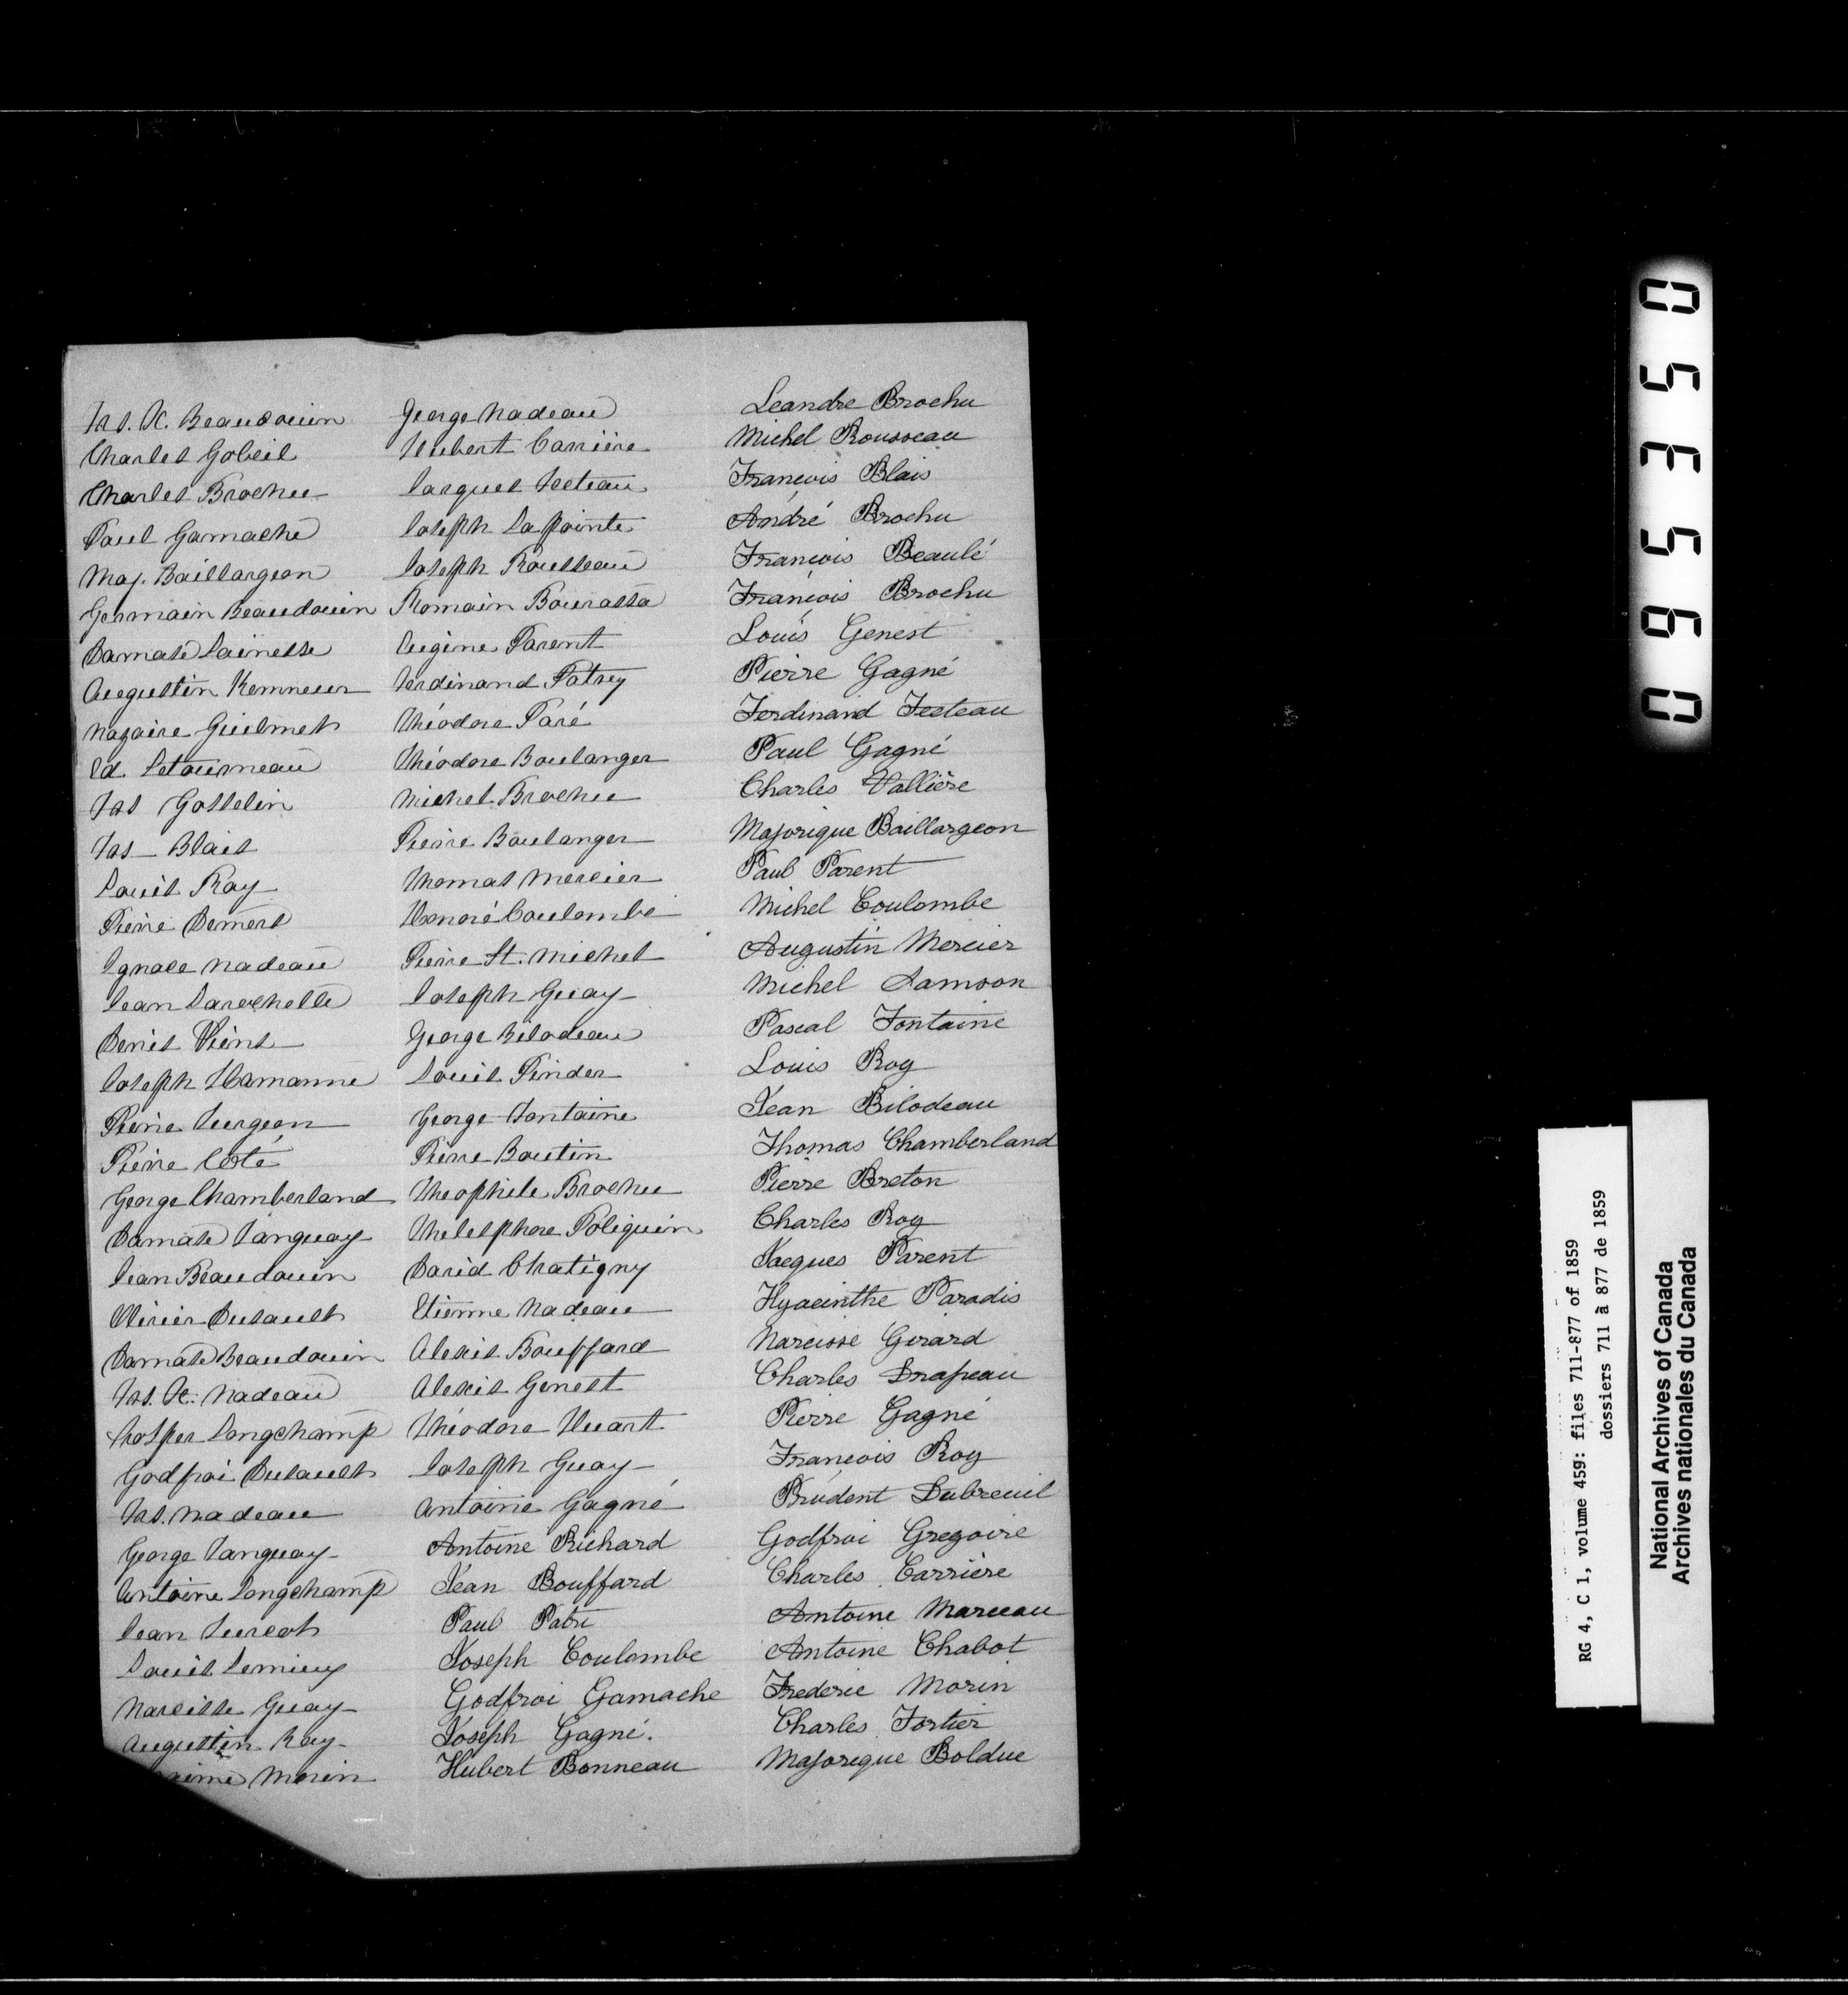 Frs. X. Beaudouin George Nadeau Leandre Brochu
Charles Gobeil Hubert Carrière Michel Rousseau
Charles Brochu Jacques Fecteau François Blais
Paul Gamache Joseph Lapointe André Brochu
Maj. Baillargeon Joseph Rousseau François Beaulé
Germain Beaudouin Romain Bourassa François Brochu
Damase Lainesse Eugène Parent Louis Genest
Augustin Kemneur Ferdinand Patry Pierre Gagné
Nazaire Guilmet Théodore Paré Ferdinand Fecteau
Ed. Letourneau Théodore Boulanger Paul Gagné
Frs Gosselin Michel Brochu Charles Vallière
Frs Blais Pierre Boulanger Majorique Baillargeon
Louis Roy Thomas Mercier Paul Parent
Pierre Demers Honoré Coulombe Michel Coulombe
Ignace Nadeau Pierre St. Michel Augustin Mercier
Jean Larochelle Joseph Guay Michel Samson
Denis Viens George Bilodeau Pascal Fontaine
Joseph Hamanne Louis Pinder Louis Roy
Pierre Turgeon George Fontaine Jean Bilodeau
Pierre Coté Pierre Boutin Thomas Chamberland
George Chamberland Theophile Brochu Pierre Breton
Damase Tanguay Thelesphore Poliquin Charles Roy
Jean Beaudouin David Chatigny Jacques Parent
Olivier Dusault Etienne Nadeau Hyacinthe Paradis
Damase Beaudouin Alexis Bouffard Narcisse Girard
Frs. X. Nadeau Alexis Genest Charles Drapeau
Prosper Longchamp Théodore Huart Pierre Gagné
Godfroi Dusault Joseph Guay François Roy
Frs. Nadeau Antoine Gagné Prudent Dubreuil
George Tanguay Antoine Richard Godfroi Gregoire
Antoine Longchamp Jean Bouffard Charles Carrière
Jean Turcot Paul Patri Antoine Marceau
Louis Lemieux Joseph Coulombe Antoine Chabot
Narcisse Guay Godfroi Gamache Frederic Morin
Augustin Roy Joseph Gagné. Charles Fortier
Morin Hubert Bonneau Majorique Bolduc
053560
RG 4, C 1, volume 459: files 711-877 of 1859
dossiers 711 à 877 de 1859
National Archives of Canada
Archives nationales du Canada